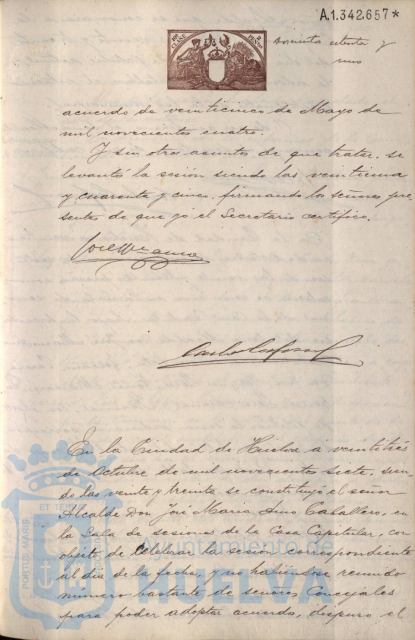 A.1.342.657*
acuerdo de veinticinco de Mayo de
mil novecientos cuatro.
Y sin otros asuntos de que tratar se
levantó la sesión siendo las veintiuna
y cuarenta y cinco, firmando los señores pre-
sentes de que yo el Secretario certifico.
En la Ciudad de Huelva á veintitrés
de Octubre de mil novecientos siete, sien-
do las veinte y treinta se constituyó el señor
Alcalde Don José Maria Caballero, en
la Sala de sesiones de la Casa Capitular, con
objeto de celebrar la sesión correspondiente
al dia de la fecha, y no habiéndose reunido
número bastante de señores Concejales
para poder adoptar acuerdo, dispuso el
PORTUS MARIS ET TER
Ayuntamiento de
HUELVA